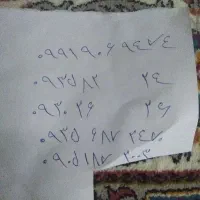 ۰۹۹۱۹۰۶ ۹۴۷۴
۰۹۳۵۸۲ ۲۴
۰۹۳۰ ۲۶ ۲۶
۰۹۳۵ ۶۸۷ ۲۴۷۰
۰۹۰۵۱۸۷ ۲۰۰۳